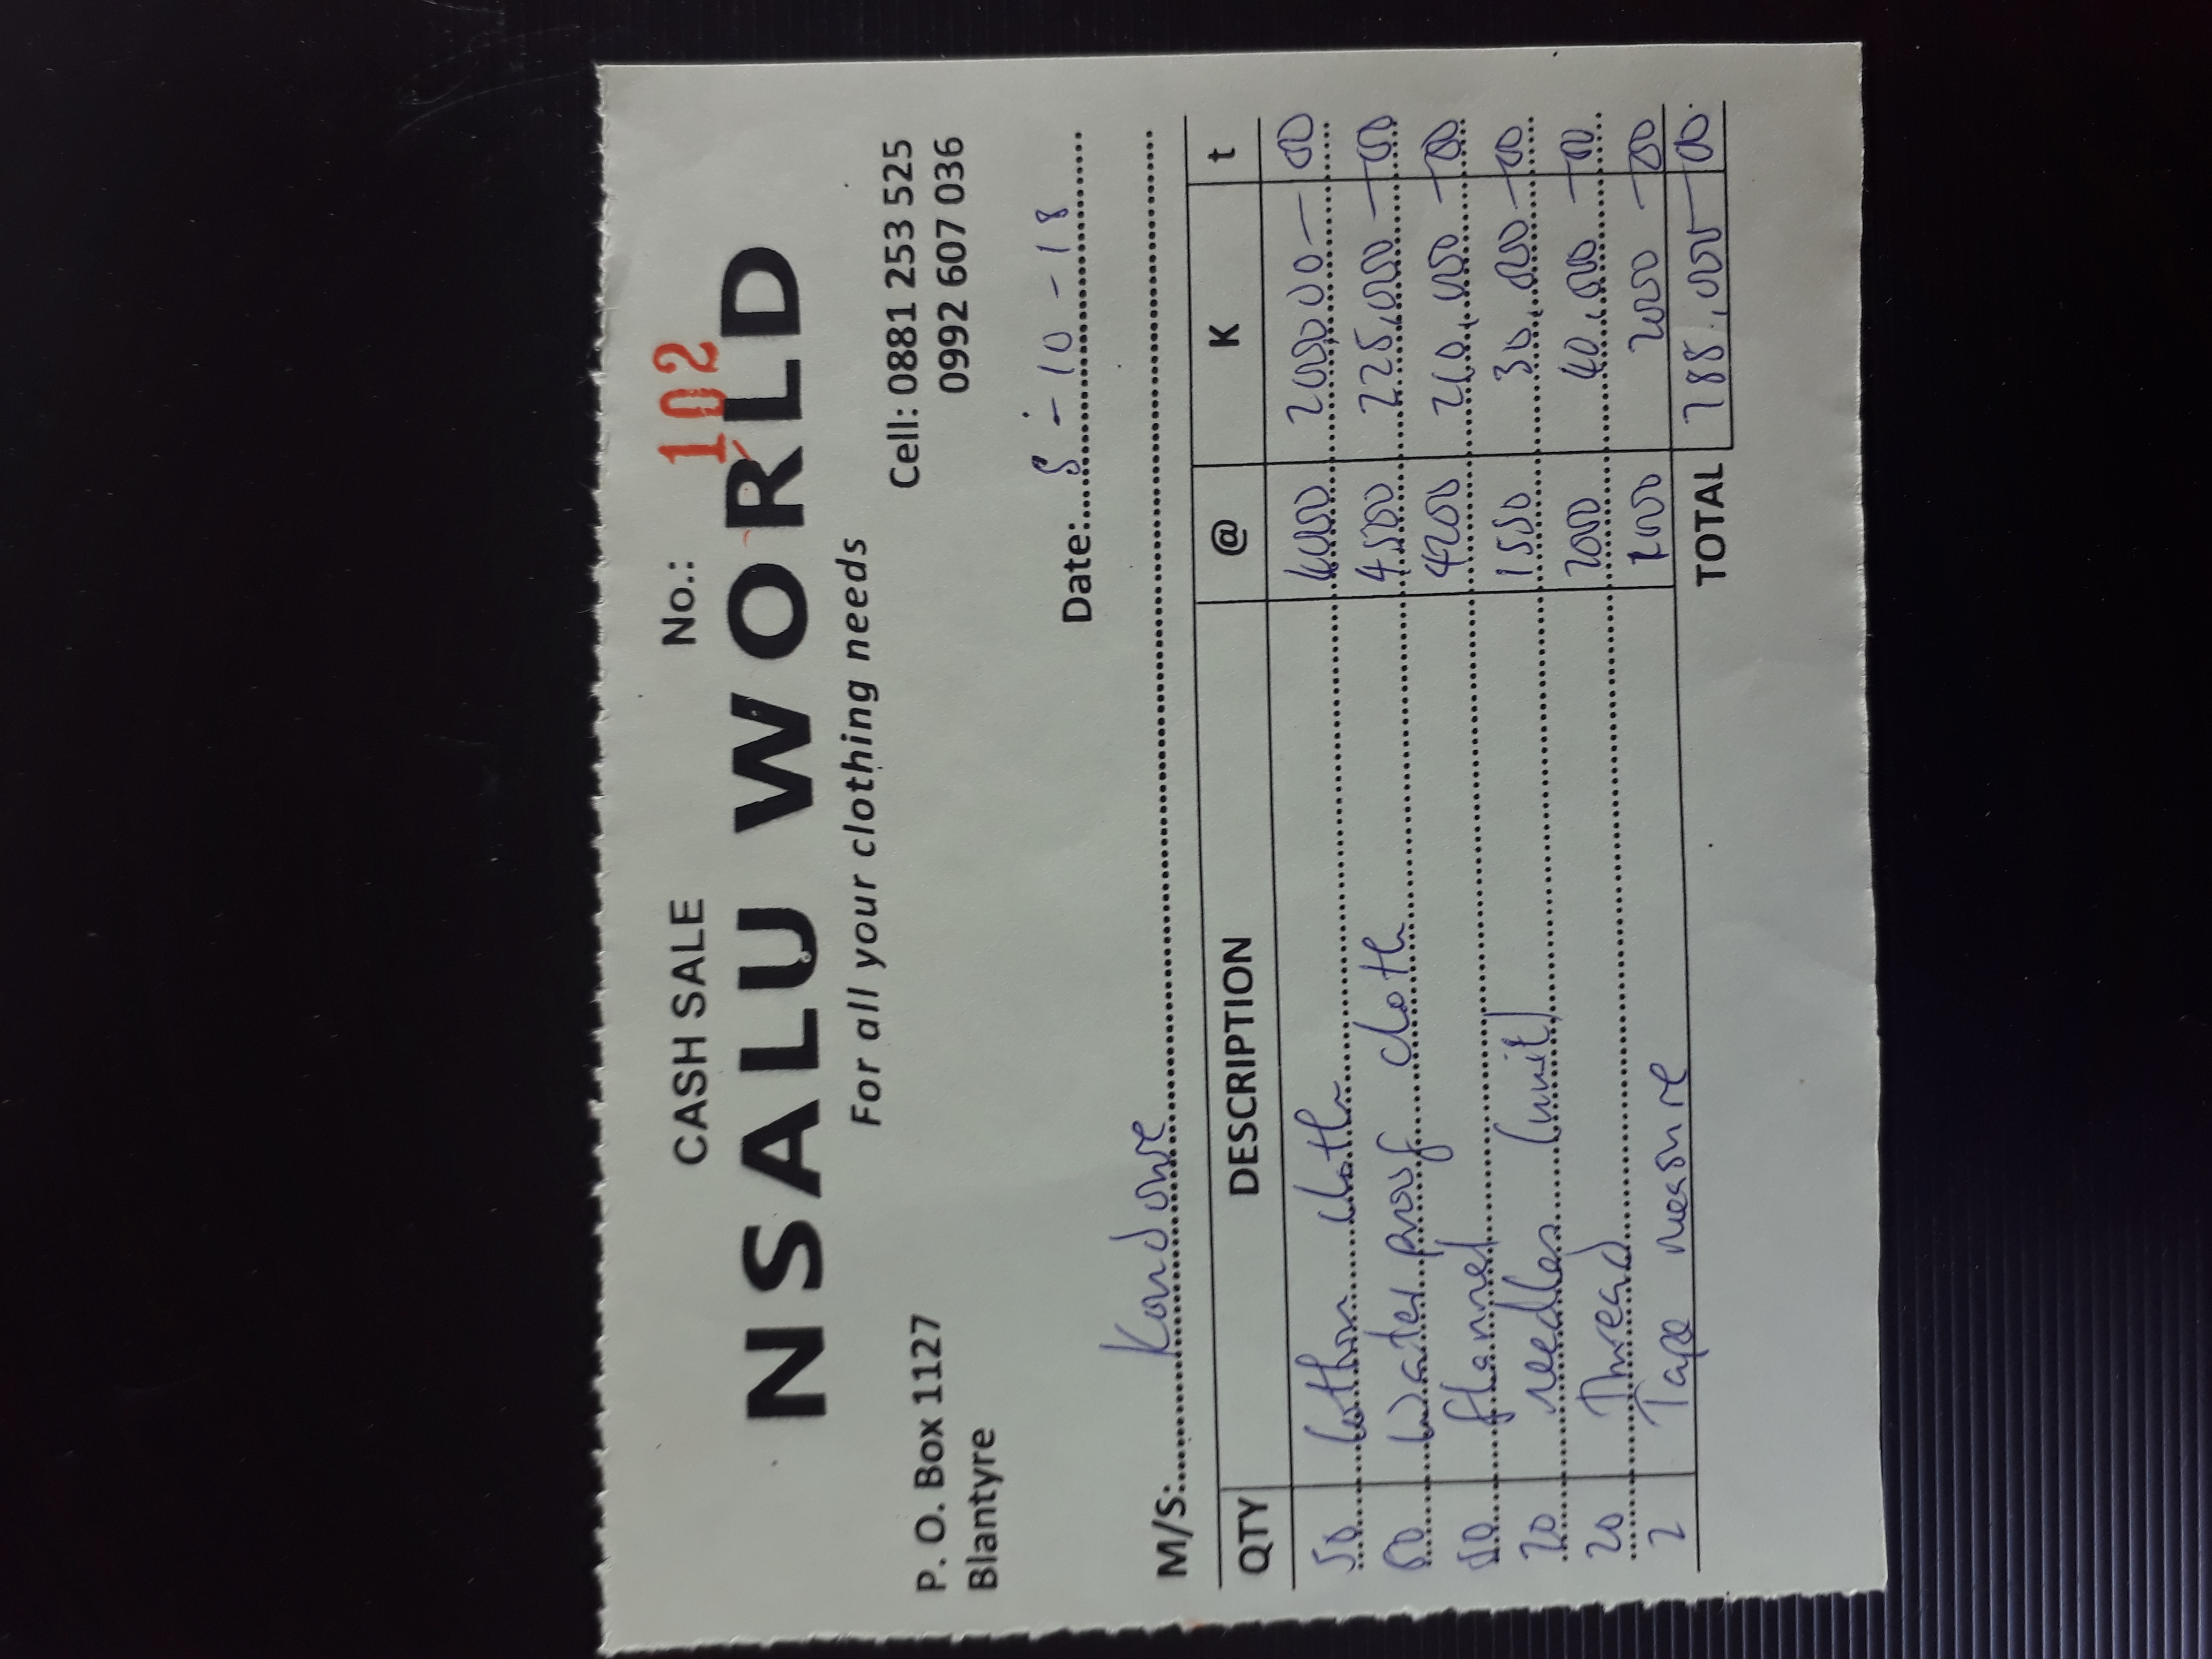 CASH SALE No.: 102
NSALU WORLD
For all your clothing needs
P. O. Box 1127 Cell: 0881 253 525
Blantyre 0992 607 036
Date: 5-10-18
M/S: Kandowe
QTY DESCRIPTION @ K t
50 Cotton cloth 4000 200,000 - 00
50 Water proof cloth 4500 225,000 - 00
50 flannel 4200 210,000 - 00
20 needles (unit) 1550 30,000 - 00
20 Thread 2000 40,000 - 00
2 Tape measure 1000 2000 - 00
TOTAL 00